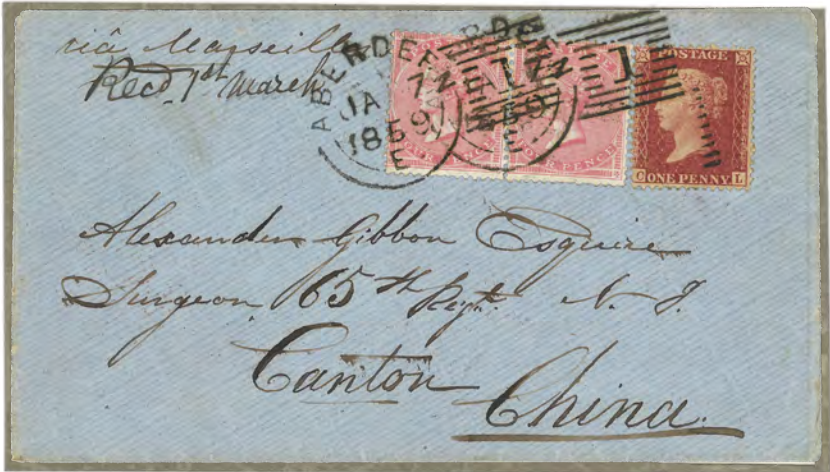 viâ Marseilles
Recd. 1st March
ABERDEEN
JA 7
1859
E
1
FOUR PENCE
FOUR PENCE
POSTAGE
C ONE PENNY L
Alexander Gibbon Esquire
Surgeon 65th Regt. N. I.
Canton
China.